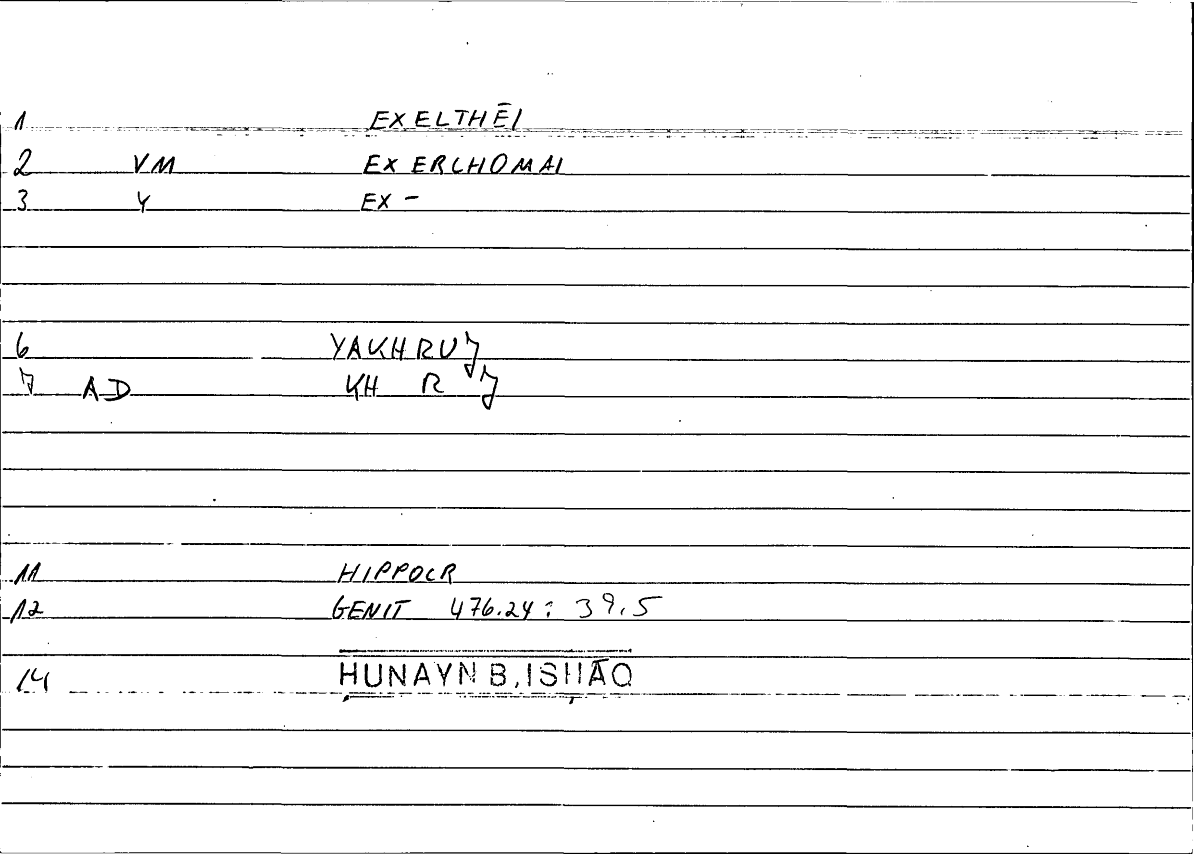 1 EXELTHĒI
2 VM EXERCHOMAI
3 Y EX -
6 YAKHRUJ
7 AD KH R J
11 HIPPOCR
12 GENIT 476.24 : 39.5
14 ḤUNAYN B. ISḤĀQ